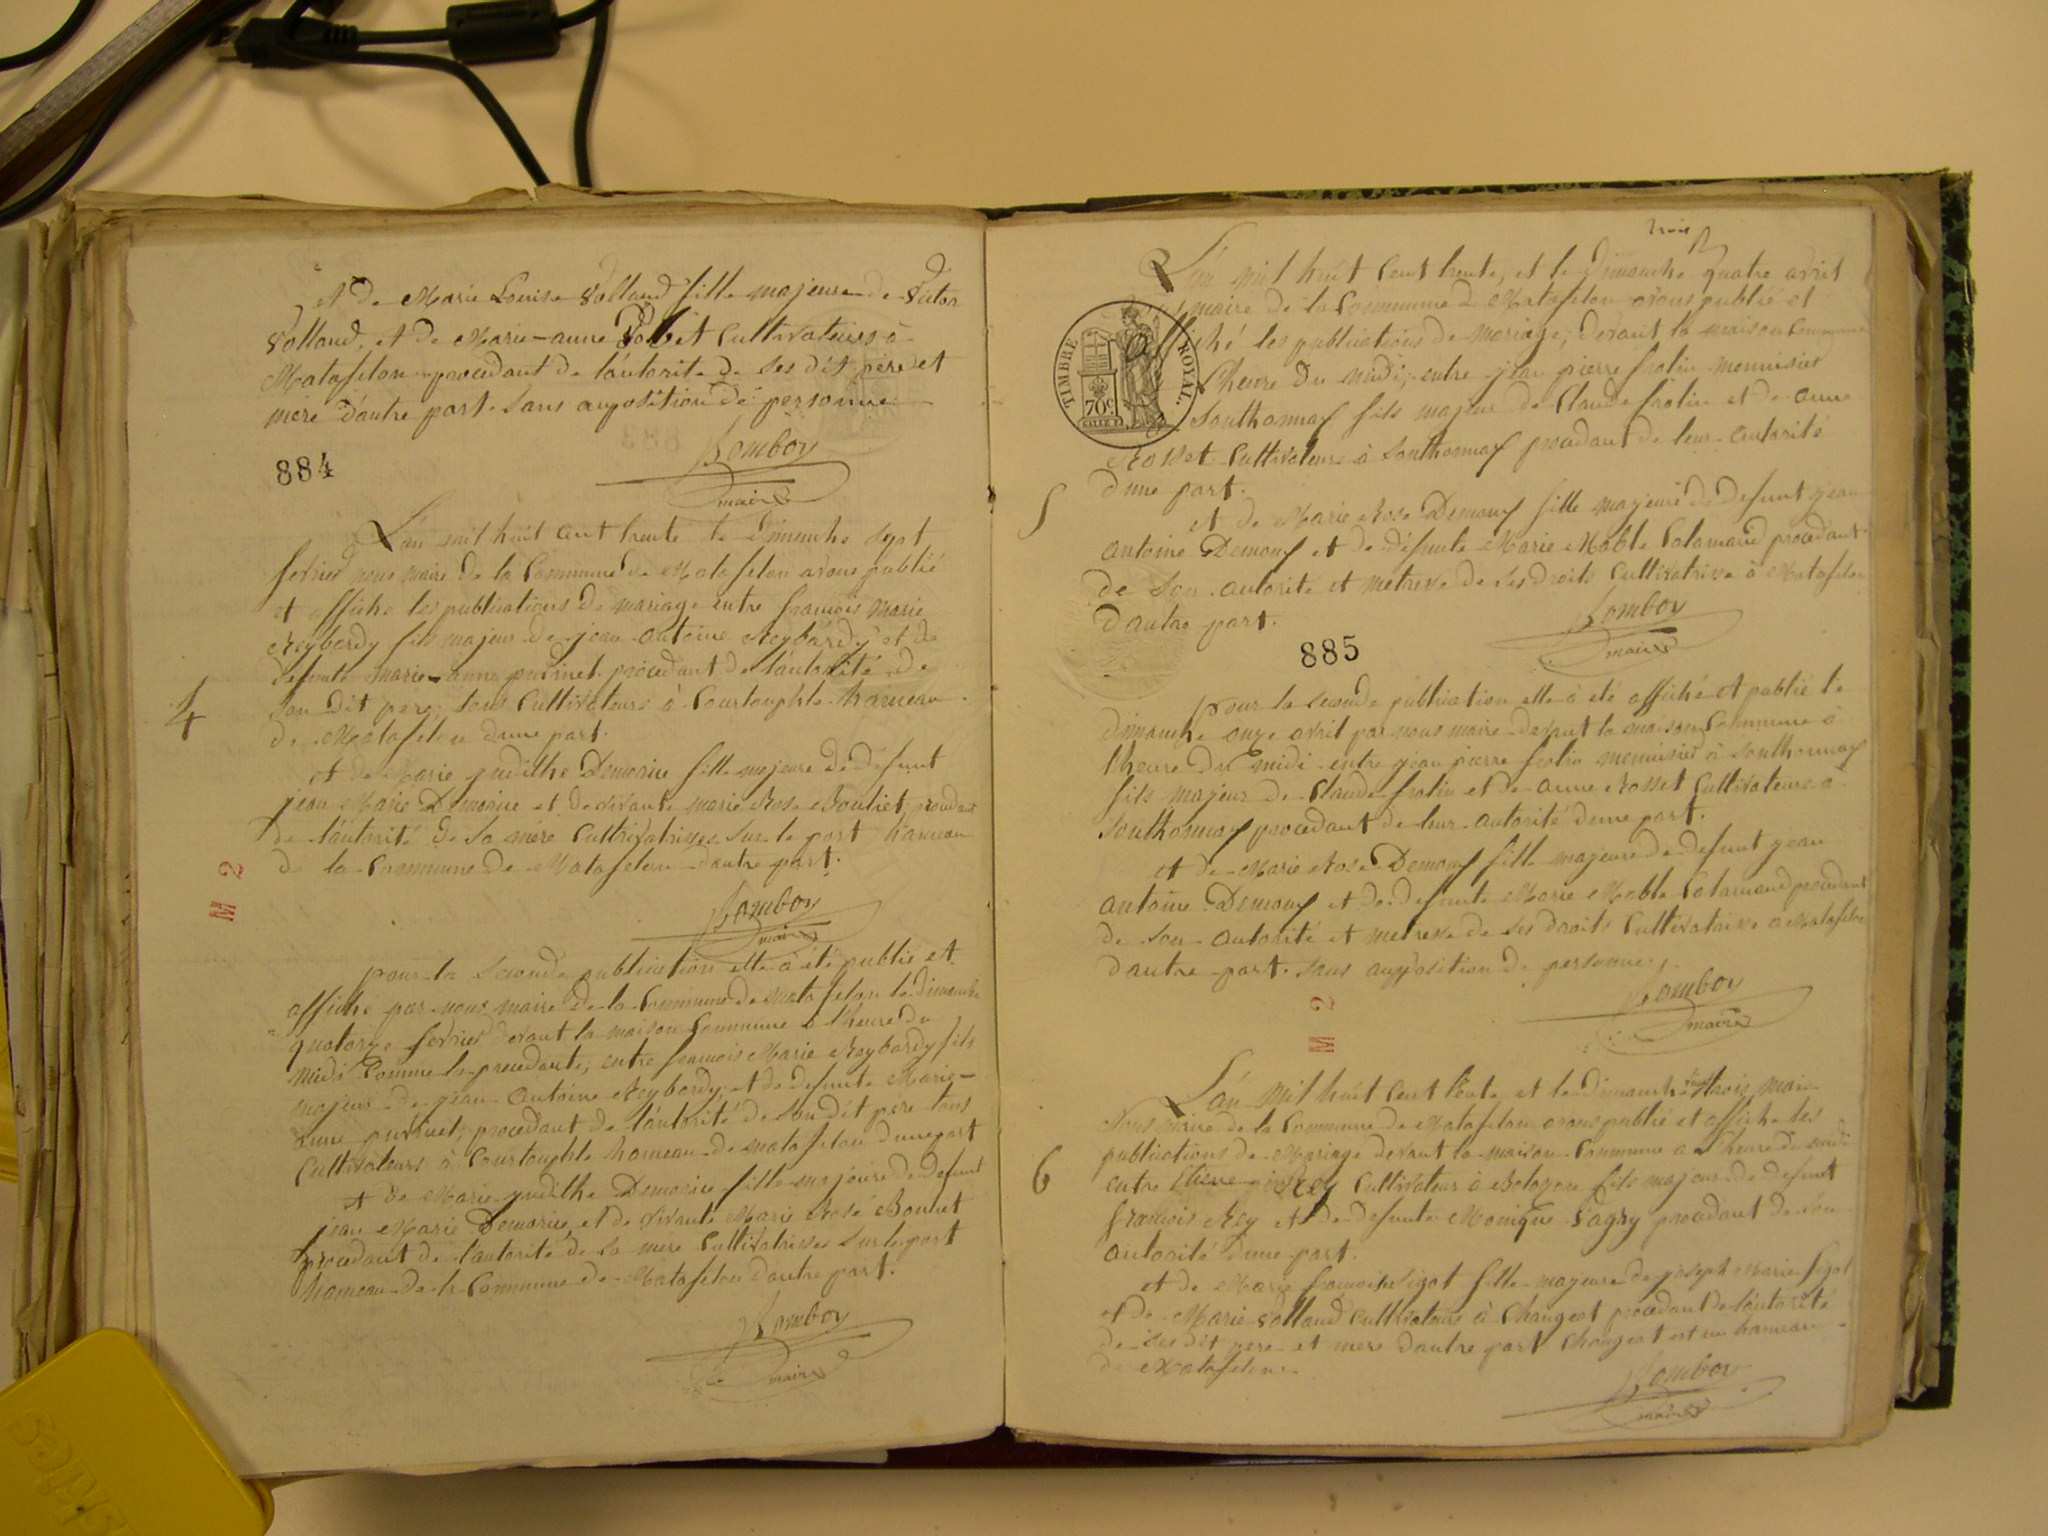 et de Marie Louise Volland fille majeure de Victor
Volland, et de Marie-anne Cultivateurs à
Matafelon procedant de l'autorite de ses dit père et
mère d'autre part. Sans auposition de personne
Romboy
maire
884
L'an mil huit cent trente le dimenche sept
fevrier nous maire de la Commune de Matafelon avons publié
et affiche les publications de mariage entre françois Marie
Reybardy fils majeur de jean antoine Reybardy et de
defunte marie-anne pu procedant de l'autorité de
son dit pere, tous Cultivateurs à Courtouphle hameau
de Matafelon dune part.
4
et de Marie judithe Demorine fille majeure de défunt
jean Marie Demorine et de vivante marie Rose Bouliet procedant
de l'autorité de sa mère Cultivatrices sur le port hameau
de la Commune de Matafelon dautre part.
M 2
Romboy
maire
pour la seconde publication elle à été publié et
affiche par nous maire de la Commune de Matafelon le dimenche
quatorze fevrier devant la maison Commune à l'heure du
midi Comme la precedante, entre francois Marie Reybardy fils
majeur de jean antoine Reybardy, et de defunte Marie-
anne procedant de l'autorité de son dit père tous
Cultivateurs à Courtouphle hameau de matafelon dune part
et de Marie judithe Demorine fille majeure de defunt
jean Marie Demorine, et de vivante Marie Rosé Bouliet
procedant de l'autorité de sa mère Cultivatrices sur le port
hameau de la Commune de Matafelon dautre part.
Romboy
maire
trois
L'an mil huit Cent trente, et le Dimanche quatre avril
maire de la Commune de Matafelon avons publié et
iché les publications de mariage, devant la maison Commune
l'heure du midi, entre jean pierre frolin menuisier
Southonnax fils majeur de Claude frolin et de anne
Rosset Cultivateurs à Southonnax procedant de leur autorité
dune part.
TIMBRE ROYAL.
70 c
5
et de Marie Rose Demouf fille majeure de defunt jean
antoine Demouf et de défunte Marie Noble Calamand procedant
de Son autorité et metresse de ses droits Cultivatrisse à Matafelon
dautre part.
Romboy
maire
885
pour la seconde publication elle à été affiché et publié le
dimanche onze avril par nous maire devant la maison Commune à
lheure du midi entre jean pierre frolin menuisier à Southonnax
fils majeur de Claude frolin et de anne Rosset Cultivateurs à
Southonnax procedant de leur autorité dune part.
et de Marie Rose Demouf fille majeure de defunt jean
antoine Demouf et de defunte Marie Noble Calamand procedant
de son autorité et metresse de ses droits Cultivatrisse a Matafelon
dautre part. Sans auposition de personne.
Romboy
maire
M 2
L'an mil huit Cent trente et le dimanche vingt trois mai
Nous maire de la Commune de Matafelon avons publié et affiche les
publications de Mariage devant la maison Commune a l'heure de midi
entre Etienne Rey Cultivateur à Bolozon fils majeur de defunt
françois Rey et de defunte Monique Vagry procedant de son
autorité dune part.
6
et de Marie françoise Figot fille majeure de joseph Marie figot
et de Marie Volland Cultivateurs à Changeat procedant de l'autorité
de ses dit pere et mere dautre part Changeat est un hameau
de Matafelon.
Romboy
maire